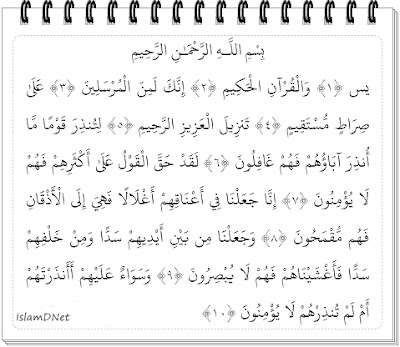 بِسْمِ اللَّـهِ الرَّحْمَـٰنِ الرَّحِيمِ
يس ﴿١﴾ وَالْقُرْآنِ الْحَكِيمِ ﴿٢﴾ إِنَّكَ لَمِنَ الْمُرْسَلِينَ ﴿٣﴾ عَلَىٰ
صِرَاطٍ مُّسْتَقِيمٍ ﴿٤﴾ تَنزِيلَ الْعَزِيزِ الرَّحِيمِ ﴿٥﴾ لِتُنذِرَ قَوْمًا مَّا
أُنذِرَ آبَاؤُهُمْ فَهُمْ غَافِلُونَ ﴿٦﴾ لَقَدْ حَقَّ الْقَوْلُ عَلَىٰ أَكْثَرِهِمْ فَهُمْ
لَا يُؤْمِنُونَ ﴿٧﴾ إِنَّا جَعَلْنَا فِي أَعْنَاقِهِمْ أَغْلَالًا فَهِيَ إِلَى الْأَذْقَانِ
فَهُم مُّقْمَحُونَ ﴿٨﴾ وَجَعَلْنَا مِن بَيْنِ أَيْدِيهِمْ سَدًّا وَمِنْ خَلْفِهِمْ
سَدًّا فَأَغْشَيْنَاهُمْ فَهُمْ لَا يُبْصِرُونَ ﴿٩﴾ وَسَوَاءٌ عَلَيْهِمْ أَأَنذَرْتَهُمْ
أَمْ لَمْ تُنذِرْهُمْ لَا يُؤْمِنُونَ ﴿١٠﴾
IslamDNet